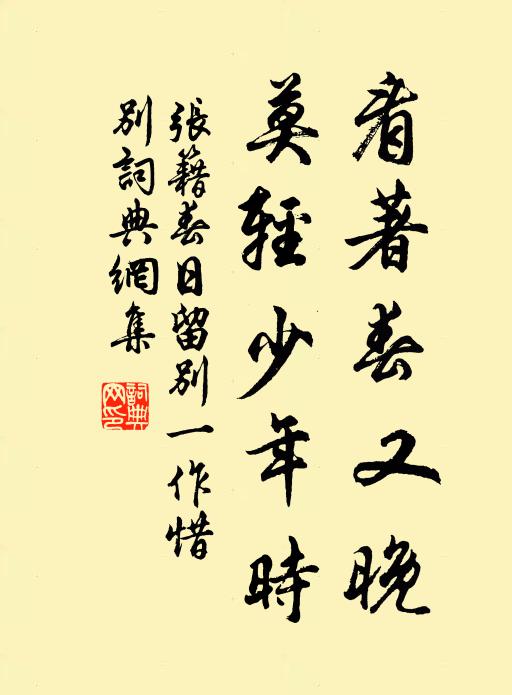 看著春又晚
莫輕少年時
張籍春日留別一作惜
別詞典網集
詞典網印